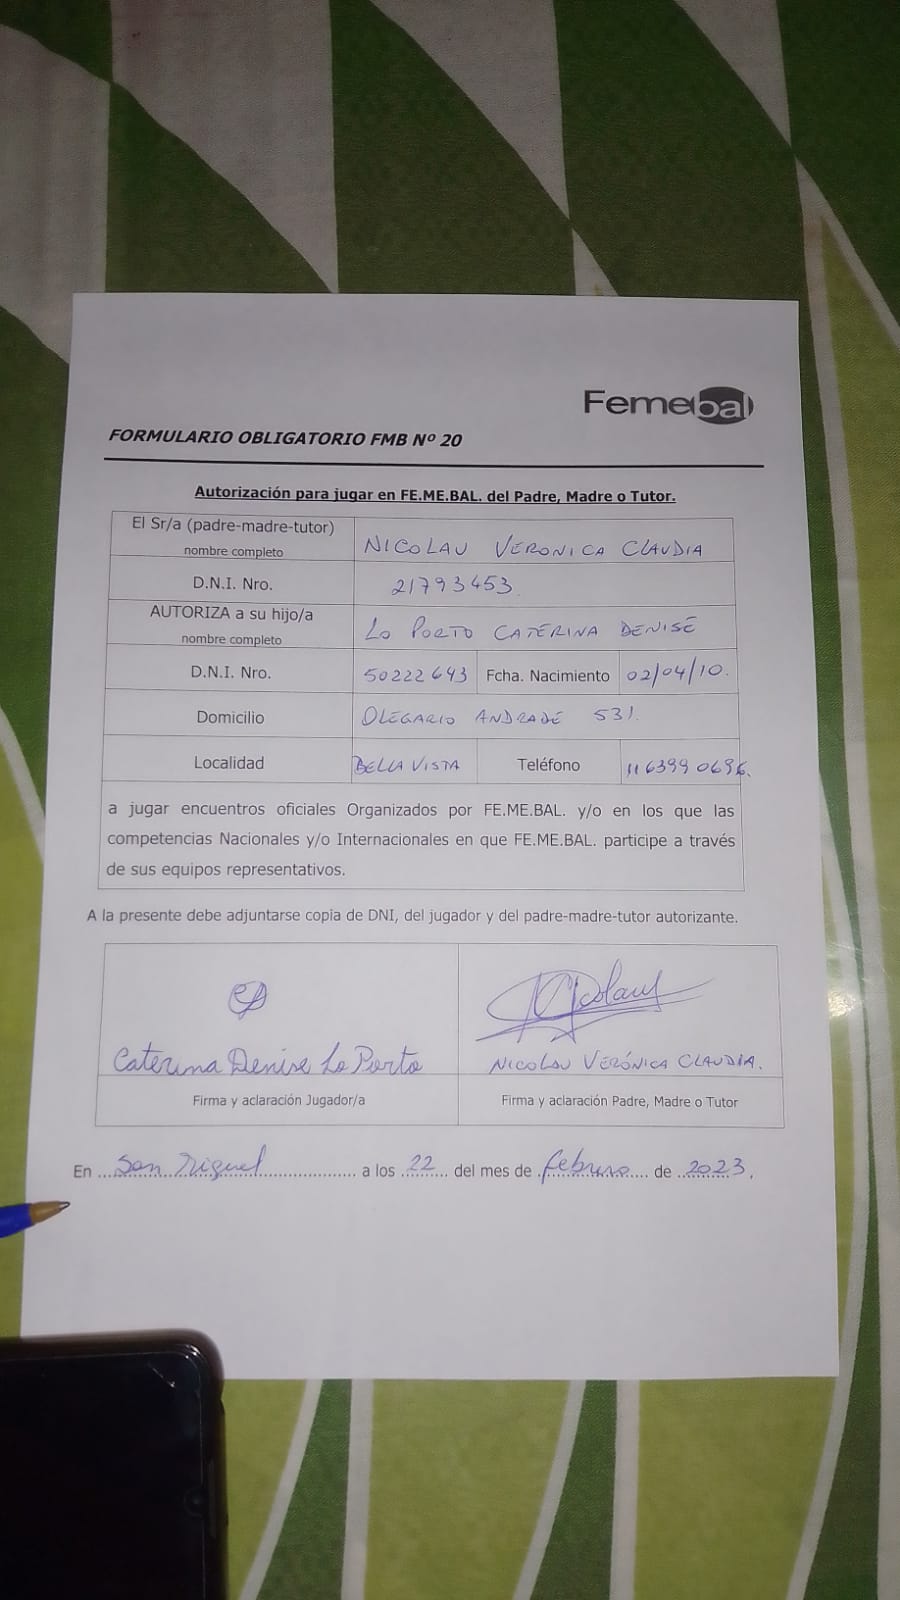 Femebal
FORMULARIO OBLIGATORIO FMB Nº 20
Autorización para jugar en FE.ME.BAL. del Padre, Madre o Tutor.
El Sr/a (padre-madre-tutor)
nombre completo
NICOLAU VERONICA CLAUDIA
D.N.I. Nro. 21793453
AUTORIZA a su hijo/a
nombre completo
LO PORTO CATERINA DENISE
D.N.I. Nro. 50222643 Fcha. Nacimiento 02/04/10.
Domicilio OLEGARIO ANDRADE 531.
Localidad BELLA VISTA Teléfono 1163990696.
a jugar encuentros oficiales Organizados por FE.ME.BAL. y/o en los que las
competencias Nacionales y/o Internacionales en que FE.ME.BAL. participe a través
de sus equipos representativos.
A la presente debe adjuntarse copia de DNI, del jugador y del padre-madre-tutor autorizante.
Caterina Denise Lo Porto
Firma y aclaración Jugador/a
NICOLAU VERÓNICA CLAUDIA.
Firma y aclaración Padre, Madre o Tutor
En San Miguel a los 22 del mes de febrero de 2023.